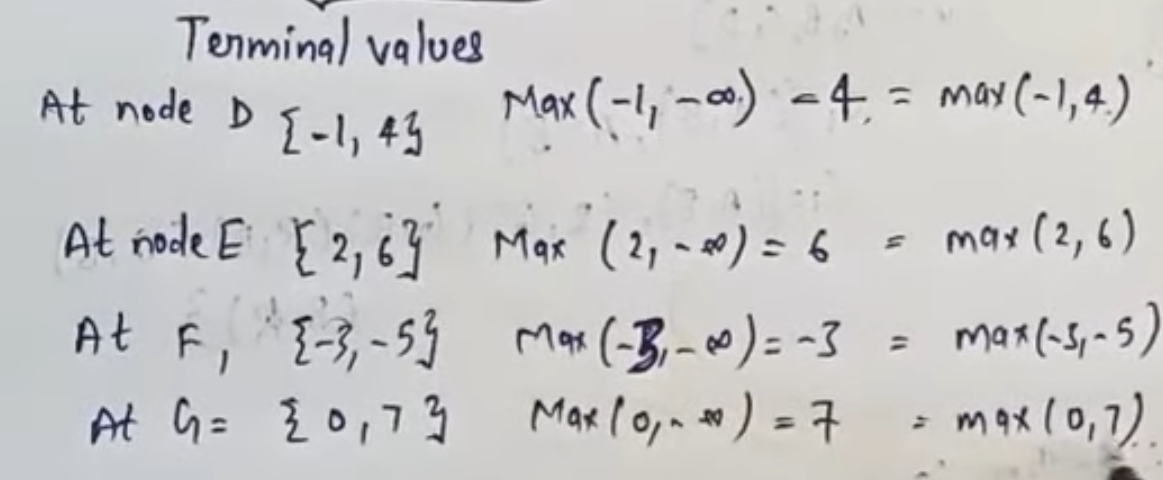 Terminal values
At node D {-1, 4} Max(-1, -∞) = 4. = max(-1,4)
At node E {2, 6} Max (2, -∞) = 6 = max(2, 6)
At F, {-3, -5} Max(-3, -∞) = -3 = max(-3, -5)
At G = {0, 7} Max(0, -∞) = 7 = max(0,7)